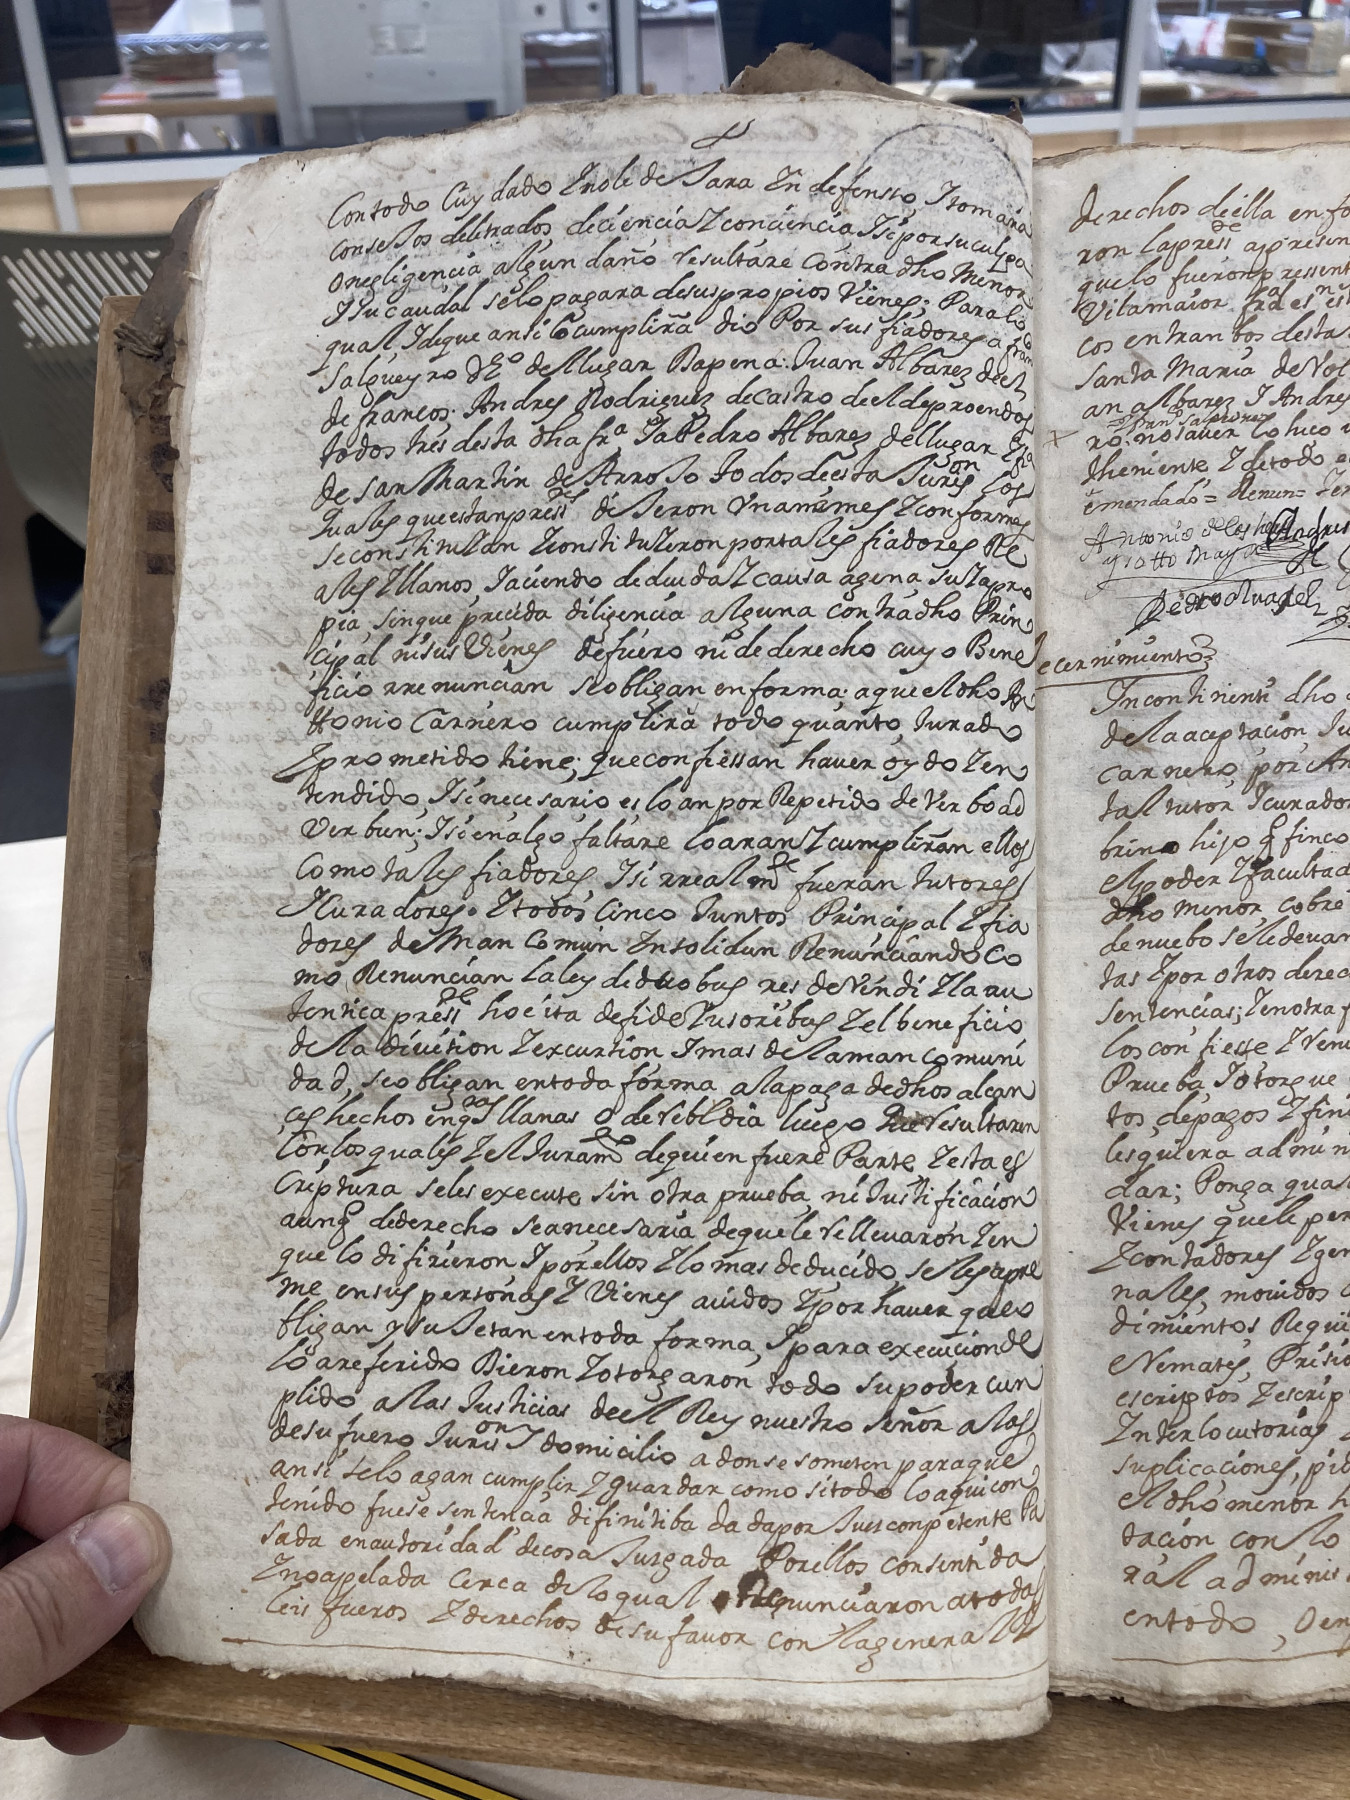 Con todo Cuydado Y nole deJara Yndefensso, Y tomara
conseJos deletrados deciencia Y conciencia Y si por su culpa
o negligencia algun daño resultare contra dho Menor
Y su caudal se lo pagara desus propios Vienes; Para lo
qual Y de que ansi lo cumplira dio Por sus fiadores a fran^co
Salgueyro v^o deel lugar Bapena. Juan Albarez deel
de francos. Andres Rodriguez de Castro deel deproendos
todos tres desta dha fr^a Ya Pedro Albarez del lugar
de san Martin de Arroxo todos deesta Juris^on los
quales que estan press^tes diJeron Unanimes Y conformes
se constituIan Y constituIeron por tales fiadores Re
ales Y llanos, haciendo de deuda Y causa agena, suIa pro
pia, sin que preceda diligencia alguna contra dho Prin
cipal ni sus Vienes de fuero ni de derecho cuyo Bene
ficio rrenuncian se obligan en forma; a que el dho An
ttonio Carnero cumplira todo quanto, Jurado
Y prometido tiene; que confiessan haver oydo Y en
tendido, Y si necesario es lo an por Repetido de Verbo ad
Verbun; Y si en algo faltare lo aran Y cumpliran ellos
Como tales fiadores, Y si rrealm^te fueran tutores
Y Curadores. Y todos Cinco Juntos Principal Y fia
dores de Man Comun Ynsolidun Renunciando Co
mo Renuncian la ley de duobus res de Vendi Y la au
tentica press^te hoc ita de fideIusoribus Y el beneficio
de la divition Y excurtion Y mas de la mancomuni
dad, se obligan en toda forma a la paga de dhos alcan
ces hechos en q^tas llanas o de rebeldia luego que resultaren
Con los quales Y el Juram^to de quien fuere Parte, Y esta es
Criptura se les execute sin otra prueba, ni Justificacion
aunq̃ de derecho sea necesaria de que le rellevaron Y en
que lo difirieron Y por ellos Y lo mas deducido, se les apre
mie en sus personas Y Vienes avidos Y por haver que o
bligan y suJetan en toda forma, Y para execucion de
lo areferido Dieron Y otorgaron todo su poder cun
plido a las Justicias deel Rey nuestro señor a las
de su fuero Juris^on Y domicilio a donse someten para que
ansi se lo agan cumplir Y guardar como si todo lo aqui con
tenido fuese sentencia difinitiba dada por Jues conpetente Pa
sada en autoridad de cosa Juzgada Por ellos consentida
Y no apelada Cerca de lo qual Renunciaron a todas
leis fueros Y derechos de su favor con la general
derechos de ella en fo
ron la press^te
que lo fueron pressent
Vilamaior
cos entranbos desta
santa Maria de Vol
an albarez Y Andres
fran^co salgueyro
ro: no saver lo hico
theniente Y de todo
emendado = Renun =
Antonio
y sotto mayor
Pedro alvarez
ecernimiento
Yncontinenti dho
de la aceptacion Ju
carnero, por An
tal tutor Y curador
brino hijo q̃ finco
el poder Y facultad
dho menor, cobre
de nuebo se le devan
tas Y por otros derec
sentencias; Y en otra
los confiesse Y Venu
Prueba, Y otorgue
tos, de pagos Y fini
lesquiera admini
dar; Ponga qua
Vienes que le per
Y contadores Y gen
nales, movidos
dimientos Requi
Remates, Prisio
escriptos Y escrip
Ynterlocutorias
suplicaciones, pid
el dho menor h
tacion con lo
ral adminis
entodo,